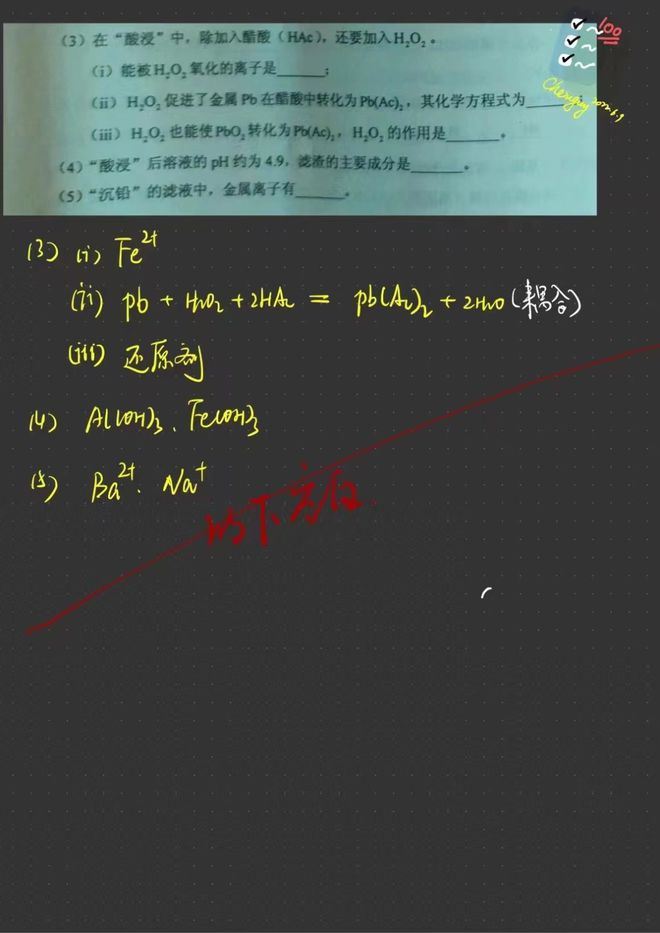 100
（3）在“酸浸”中，除加入醋酸（HAc），还要加入H₂O₂。
（i）能被H₂O₂氧化的离子是______；
（ii）H₂O₂促进了金属Pb在醋酸中转化为Pb(Ac)₂，其化学方程式为______；
（iii）H₂O₂也能使PbO₂转化为Pb(Ac)₂，H₂O₂的作用是______。
（4）“酸浸”后溶液的pH约为4.9，滤渣的主要成分是______。
（5）“沉铅”的滤液中，金属离子有______。
(3) (i) Fe²⁺
(ii) pb + H₂O₂ + 2HAc = pb(Ac)₂ + 2H₂O (耦合)
(iii) 还原剂
(4) Al(OH)₃、Fe(OH)₃
(5) Ba²⁺、Na⁺